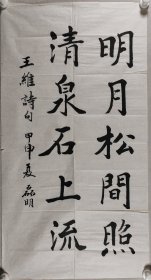 明月松間照
清泉石上流
王維詩句 甲申夏 磊明